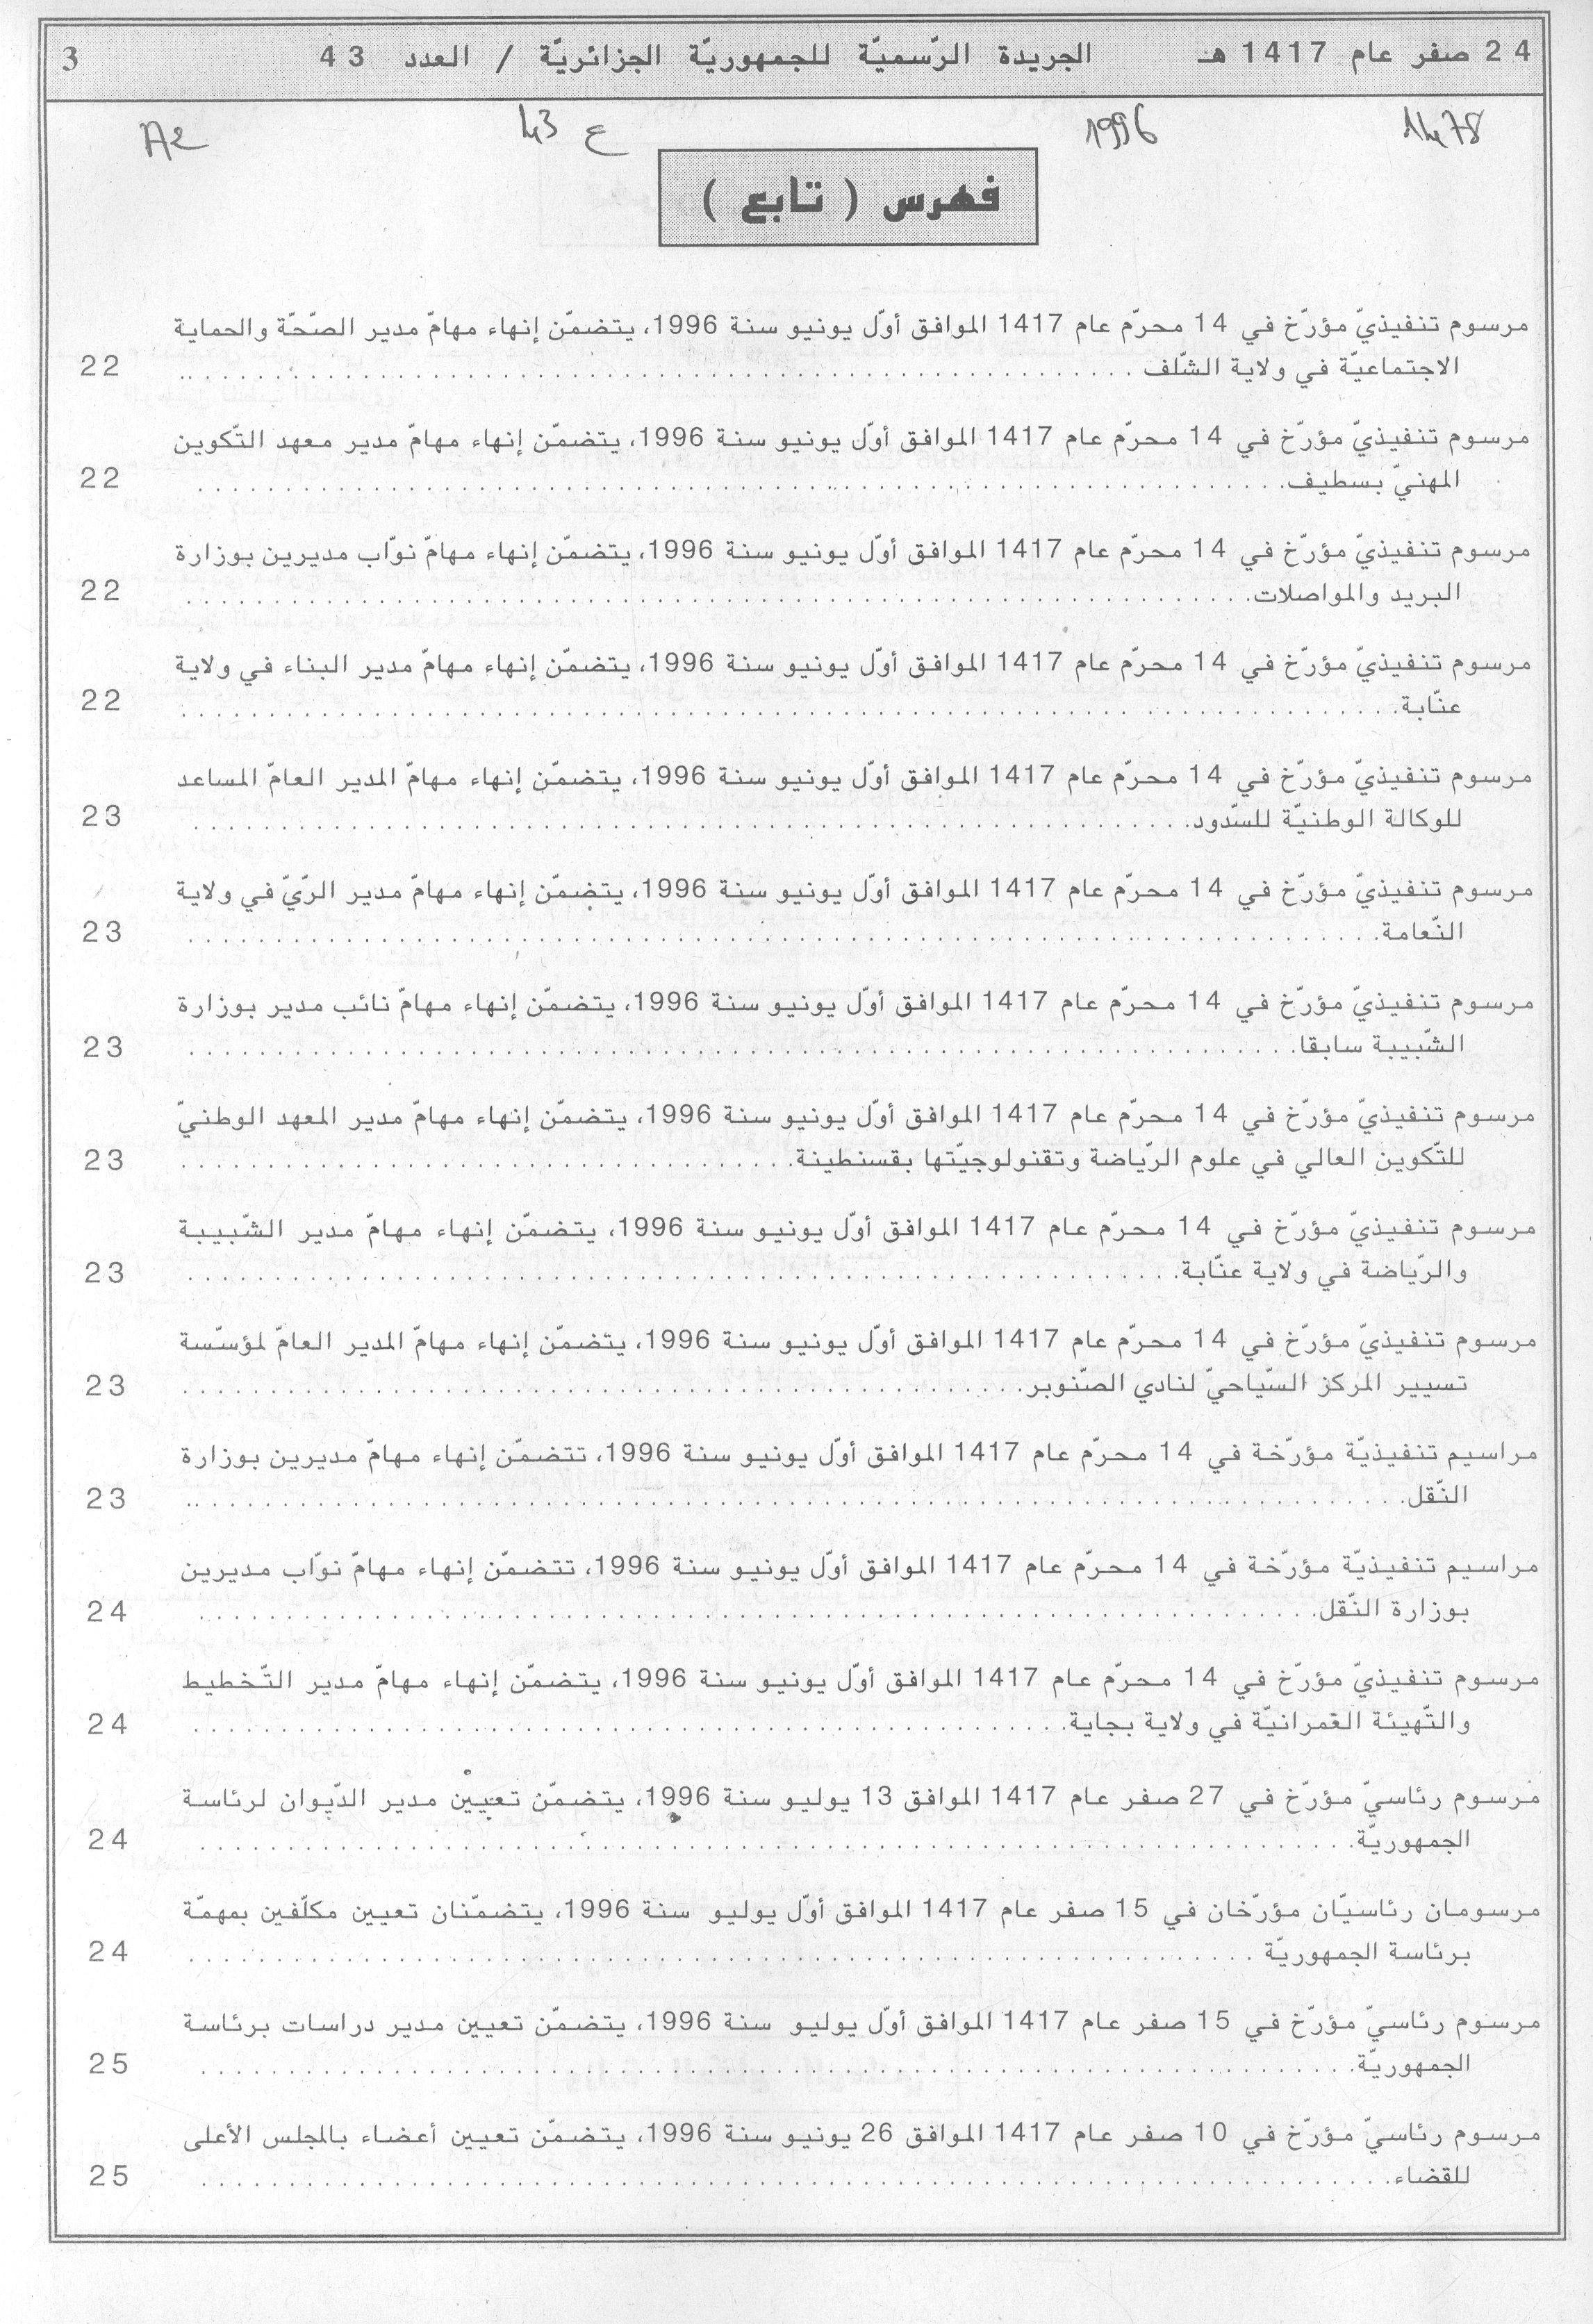 24 صفر عام 1417 هـ الجريدة الرّسميّة للجمهوريّة الجزائريّة / العدد 43 3
1478 1996 ع 43 A2
فهرس ( تابع )
مرسوم تنفيذيّ مؤرّخ في 14 محرّم عام 1417 الموافق أوّل يونيو سنة 1996، يتضمّن إنهاء مهامّ مدير الصّحّة والحماية
الاجتماعيّة في ولاية الشّلف 22
مرسوم تنفيذيّ مؤرّخ في 14 محرّم عام 1417 الموافق أوّل يونيو سنة 1996، يتضمّن إنهاء مهامّ مدير معهد التّكوين
المهنيّ بسطيف 22
مرسوم تنفيذيّ مؤرّخ في 14 محرّم عام 1417 الموافق أوّل يونيو سنة 1996، يتضمّن إنهاء مهامّ نوّاب مديرين بوزارة
البريد والمواصلات 22
مرسوم تنفيذيّ مؤرّخ في 14 محرّم عام 1417 الموافق أوّل يونيو سنة 1996، يتضمّن إنهاء مهامّ مدير البناء في ولاية
عنّابة 22
مرسوم تنفيذيّ مؤرّخ في 14 محرّم عام 1417 الموافق أوّل يونيو سنة 1996، يتضمّن إنهاء مهامّ المدير العامّ المساعد
للوكالة الوطنيّة للسّدود 23
مرسوم تنفيذيّ مؤرّخ في 14 محرّم عام 1417 الموافق أوّل يونيو سنة 1996، يتضمّن إنهاء مهامّ مدير الرّيّ في ولاية
النّعامة 23
مرسوم تنفيذيّ مؤرّخ في 14 محرّم عام 1417 الموافق أوّل يونيو سنة 1996، يتضمّن إنهاء مهامّ نائب مدير بوزارة
الشّبيبة سابقا 23
مرسوم تنفيذيّ مؤرّخ في 14 محرّم عام 1417 الموافق أوّل يونيو سنة 1996، يتضمّن إنهاء مهامّ مدير المعهد الوطنيّ
للتّكوين العالي في علوم الرّياضة وتقنولوجيّتها بقسنطينة 23
مرسوم تنفيذيّ مؤرّخ في 14 محرّم عام 1417 الموافق أوّل يونيو سنة 1996، يتضمّن إنهاء مهامّ مدير الشّبيبة
والرّياضة في ولاية عنّابة 23
مرسوم تنفيذيّ مؤرّخ في 14 محرّم عام 1417 الموافق أوّل يونيو سنة 1996، يتضمّن إنهاء مهامّ المدير العامّ لمؤسّسة
تسيير المركز السّياحيّ لنادي الصّنوبر 23
مراسيم تنفيذيّة مؤرّخة في 14 محرّم عام 1417 الموافق أوّل يونيو سنة 1996، تتضمّن إنهاء مهامّ مديرين بوزارة
النّقل 23
مراسيم تنفيذيّة مؤرّخة في 14 محرّم عام 1417 الموافق أوّل يونيو سنة 1996، تتضمّن إنهاء مهامّ نوّاب مديرين
بوزارة النّقل 24
مرسوم تنفيذيّ مؤرّخ في 14 محرّم عام 1417 الموافق أوّل يونيو سنة 1996، يتضمّن إنهاء مهامّ مدير التّخطيط
والتّهيئة العّمرانيّة في ولاية بجاية 24
مرسوم رئاسيّ مؤرّخ في 27 صفر عام 1417 الموافق 13 يوليو سنة 1996، يتضمّن تعيين مدير الدّيوان لرئاسة
الجمهوريّة 24
مرسومان رئاسيّان مؤرّخان في 15 صفر عام 1417 الموافق أوّل يوليو سنة 1996، يتضمّنان تعيين مكلّفين بمهمّة
برئاسة الجمهوريّة 24
مرسوم رئاسيّ مؤرّخ في 15 صفر عام 1417 الموافق أوّل يوليو سنة 1996، يتضمّن تعيين مدير دراسات برئاسة
الجمهوريّة 25
مرسوم رئاسيّ مؤرّخ في 10 صفر عام 1417 الموافق 26 يونيو سنة 1996، يتضمّن تعيين أعضاء بالمجلس الأعلى
للقضاء 25